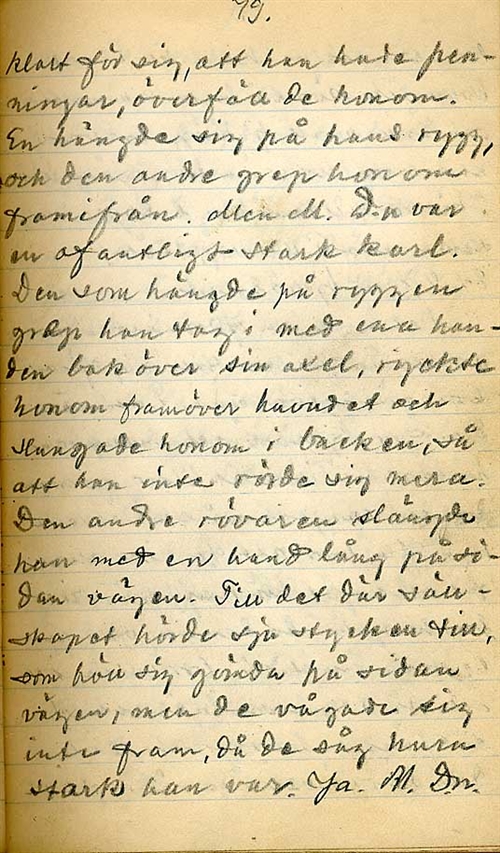 79.
klart för sig, att han hade pen-
ningar, överföll de honom.
En hängde sig på hans rygg,
och den andre grep honom
framifrån. Men M. D-n var
en ofantligt stark karl.
Den som hängde på ryggen
grep han tag i med ena han-
den bak över sin axel, ryckte
honom framöver huvudet och
slungade honom i backen, så
att han inte rörde sig mera.
Den andre rövaren slängde
han med en hand lång på si-
dan vägen. Till det där säll-
skapet hörde sju stycken till,
som höll sig gömda på sidan
vägen, men de vågade sig
inte fram, då de såg huru
stark han var. Ja. M. D-n.